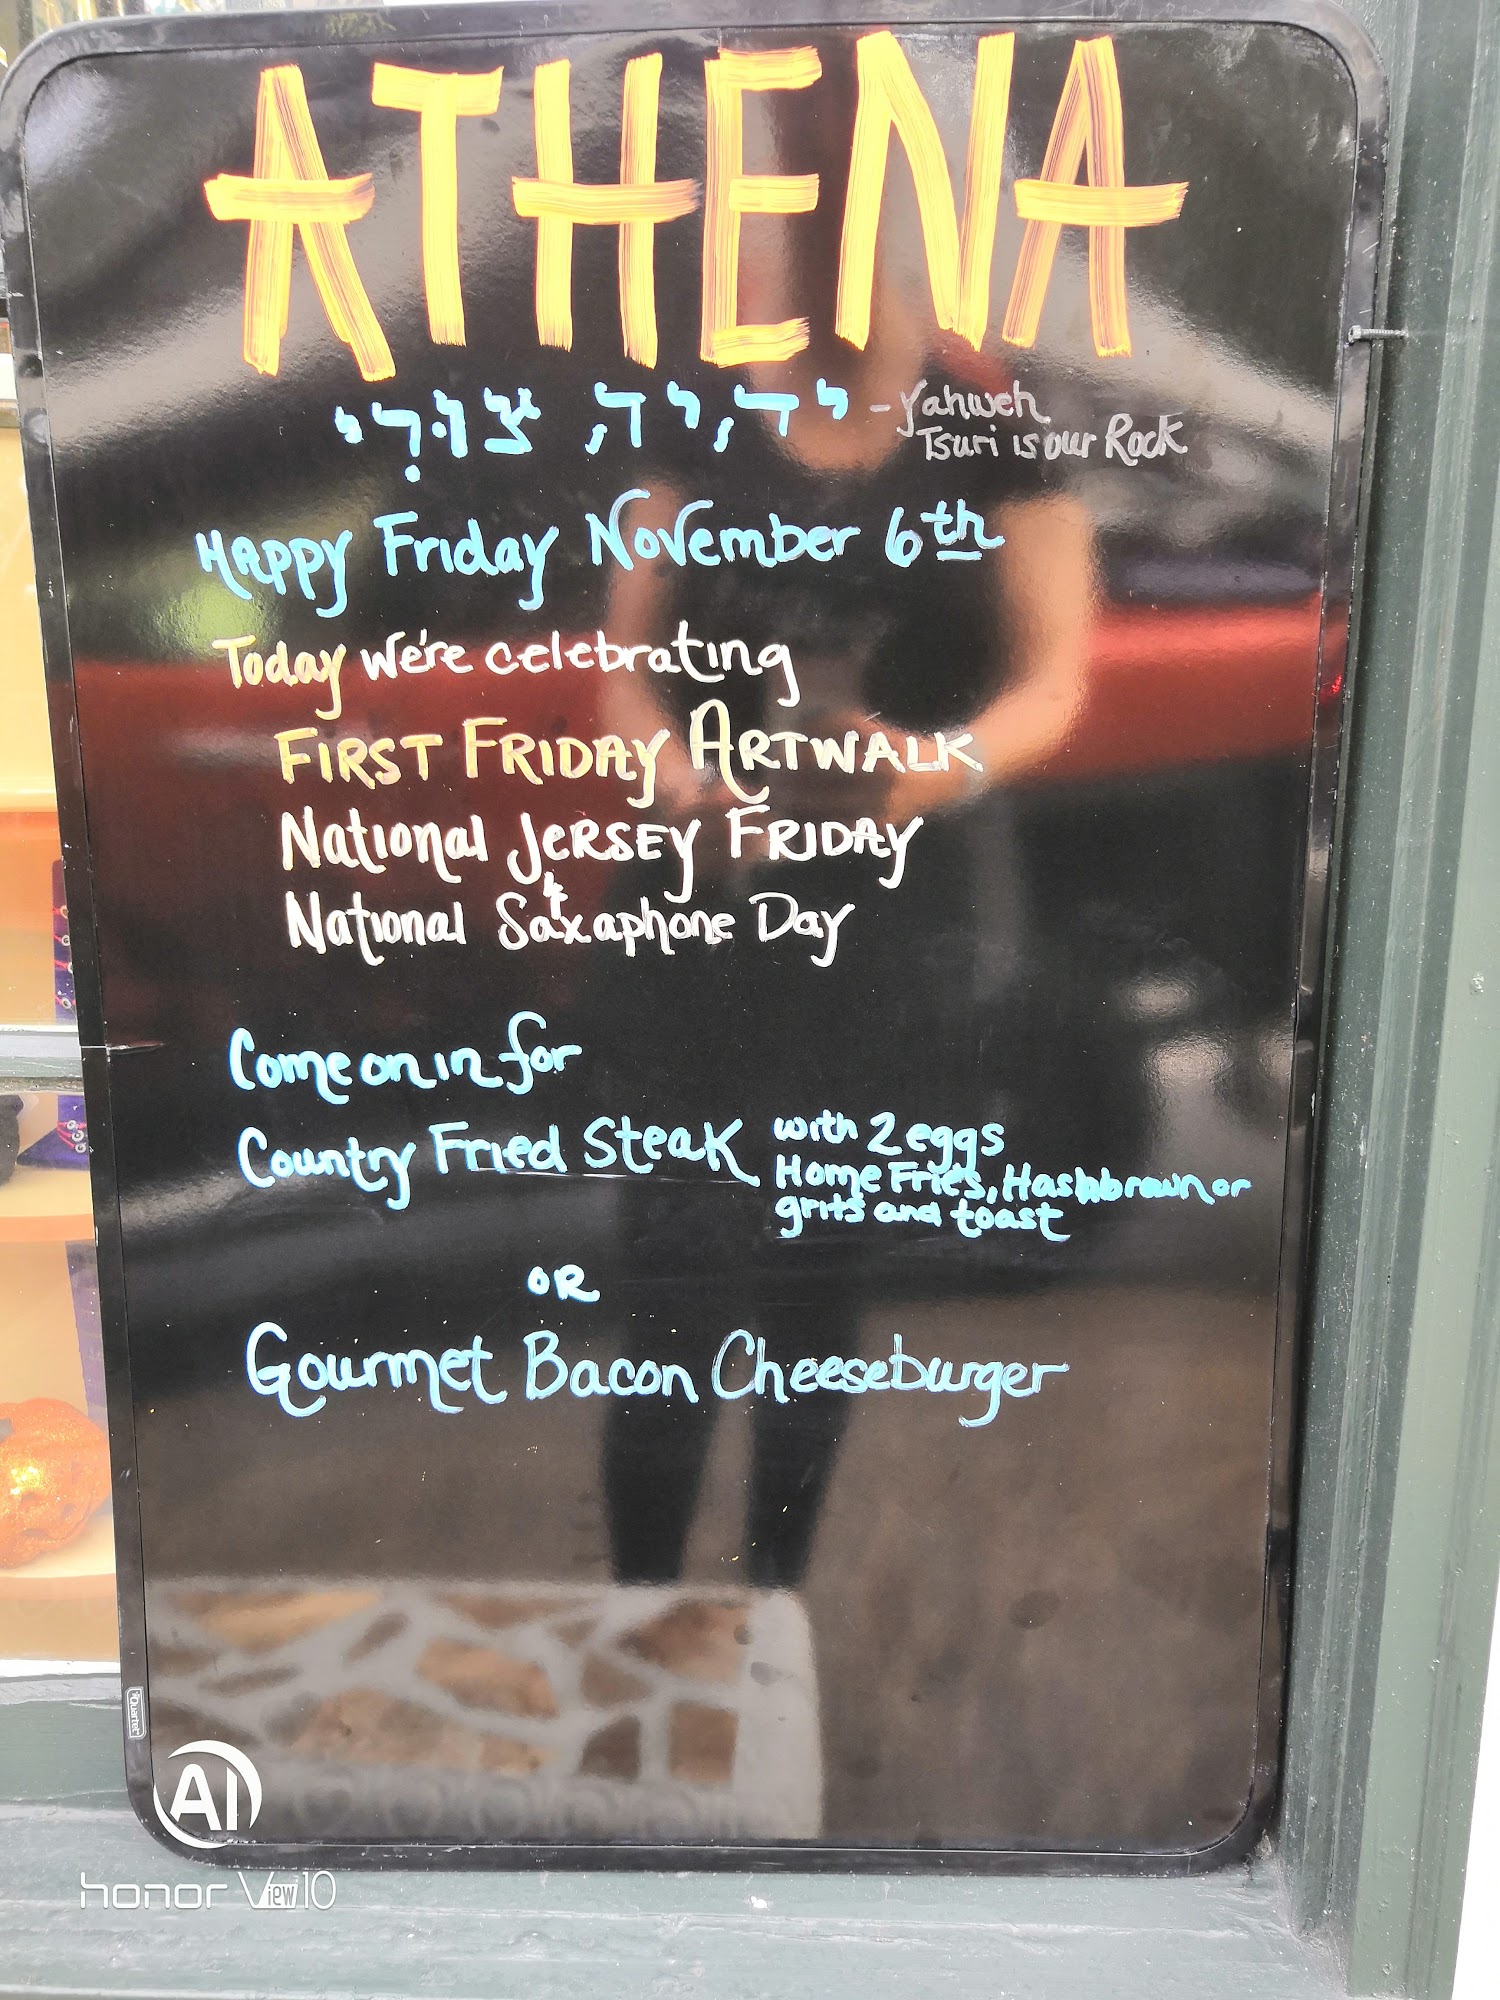 ATHENA
יהוה צורי - Yahweh
Tsuri is our Rock
Happy Friday November 6th
Today We're celebrating
FIRST FRIDAY ARTWALK
National JERSEY FRIDAY
&
National Saxaphone Day
Come on in for
Country Fried Steak with 2 eggs
Home Fries, Hashbrown or
grits and toast
OR
Gourmet Bacon Cheeseburger
Quartet
AI
honor View10